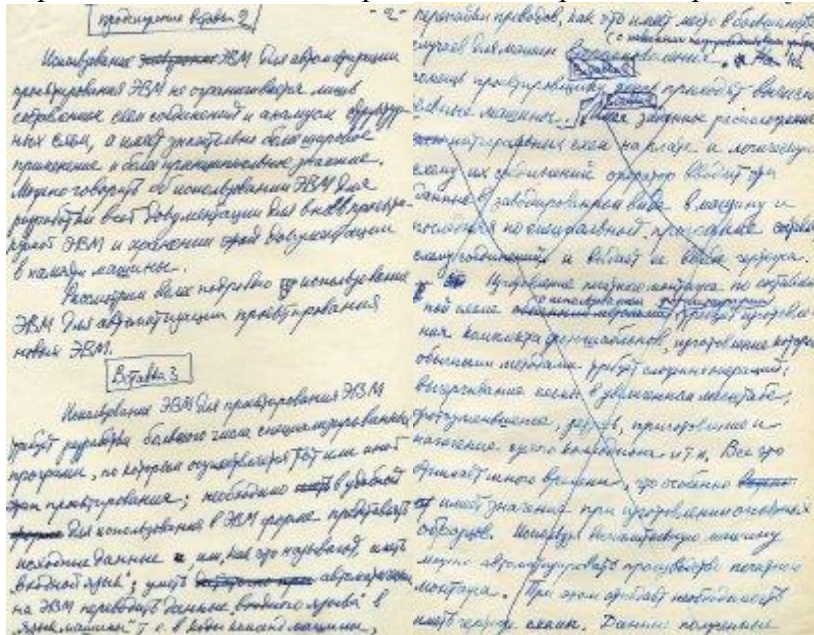 продолжение вставки 2
- 2 -
Использование ЭВМ для автоматизации
проектирования ЭВМ не ограничивается лишь
составлением схем соединений и анализом
ных схем, а имеет значительно более широкое
применение и более принципиальное значение.
Можно говорить об использовании ЭВМ для
разработки всей документации для вновь проекти-
руемой ЭВМ и хранении этой документации
в памяти машины.
Рассмотрим более подробно использование
ЭВМ для автоматизации проектирования
новых ЭВМ.
Вставка 3
Использование ЭВМ для проектирования ЭВМ
требует разработки большого числа специализированных
программ, по которым осуществляется тот или иной
этап проектирования; необходимо в удобной
для использования в ЭВМ форме представить
исходные данные, или, как это называют, иметь
"входной язык"; уметь автоматически
на ЭВМ переводить данные "входного языка" в
"язык машины", т.е. в коды команд машины,
перепайки проводов, как это имеет место в большинстве
случаев для машин
помощь проектировщику приходят вычисли-
тельные машины. Имея заданное расположение
интегральных схем на плате и логическую
схему их соединений оператор вводит эти
данные в закодированном виде в машину и
последняя по специальной программе составляет
схему соединений и выдаёт её в виде чертежа.
Изготовление печатного монтажа по составлен-
ной схеме требует изготовле-
ния комплекта фотошаблонов, изготовление которых
обычными методами требует сложных операций:
вычерчивание схемы в увеличенном масштабе,
фотоуменьшение, ретушь, приготовление и
нанесение и т.п. Все это
отнимает много времени, что особенно
имеет значение при изготовлении
образцов. Используя вычислительную машину
можно автоматизировать производство печатного
монтажа. При этом отпадает необходимость
иметь чертеж схемы. Данные полученные